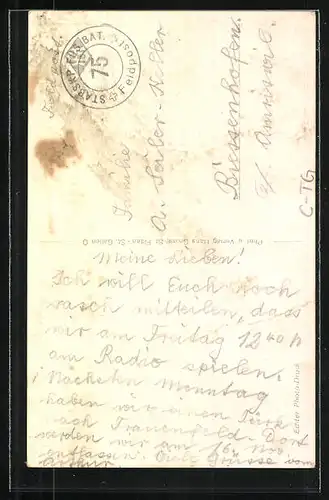 STABSKP. FÜS. BAT. 75
Feldpost
Familie
A. Seiler-Keller
Biessenhofen
b/ Amriswil
C-TG
Phot. u. Verlag Hans Gross, St. Fiden-St. Gallen O
Echter Photo-Druck
Meine Lieben!
Ich will Euch noch
rasch mitteilen, dass
wir am Freitag 12 40 h
am Radio spielen.
Nächsten Montag
haben wir einen Türk
nach Frauenfeld. Dort
werden wir am 16. Nov.
entlassen. Viele Grüsse vom
Arthur